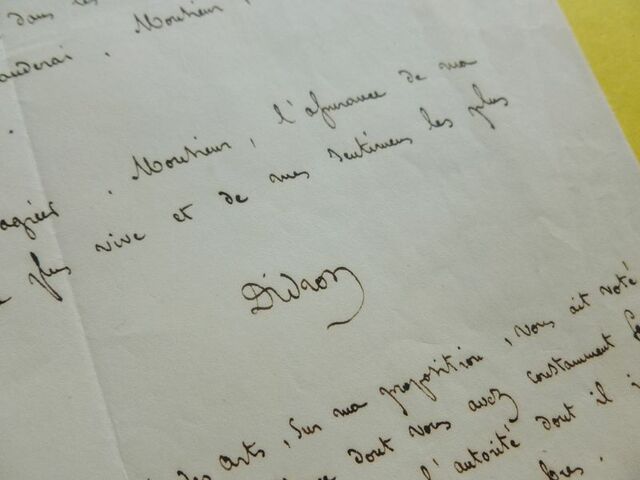 dans les
manderai. Monsieur,
agréer, Monsieur, l'assurance de ma
plus vive et de mes sentimens les plus
Didron
des arts, sur ma proposition, vous ait voté
dont vous avez constamment
l'autorité dont il